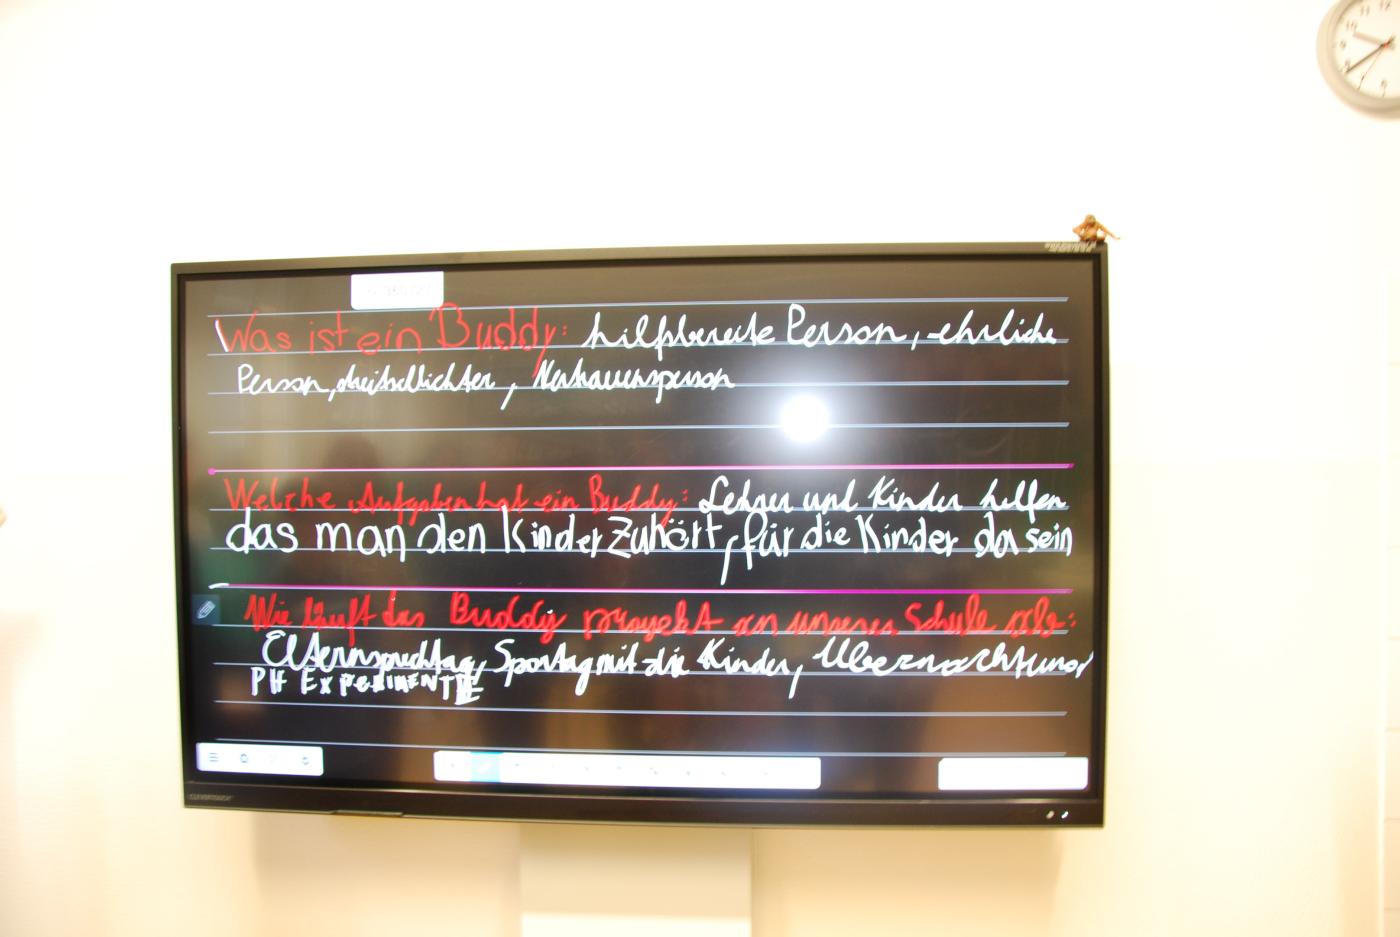 Was ist ein Buddy: hilfsbereite Person, ehrliche
Person, Vertrauensperson
Welche Aufgaben hat ein Buddy: Lehrer und Kinder helfen
das man den Kinder Zuhört, für die Kinder da sein
Wie läuft das Buddy proyekt an unserer Schule ab:
Elternsprechtag, Sportag mit die Kinder, Übernachtung
PH EXPERIMENTE
CLEVERTOUCH